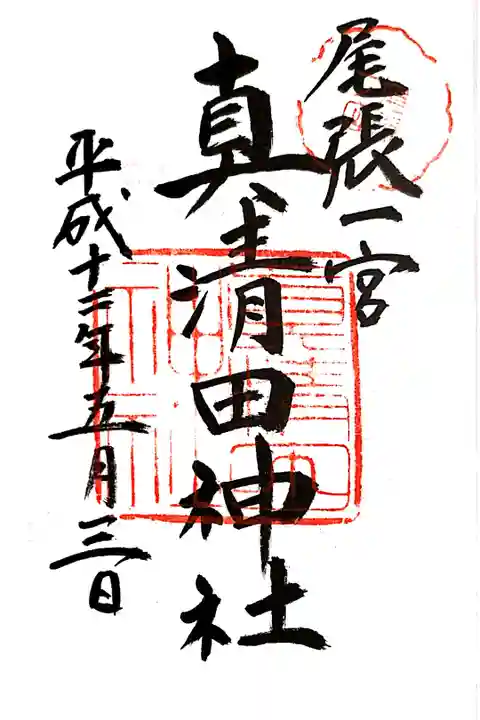 尾張一宮
真清田神社
平成十二年五月三日